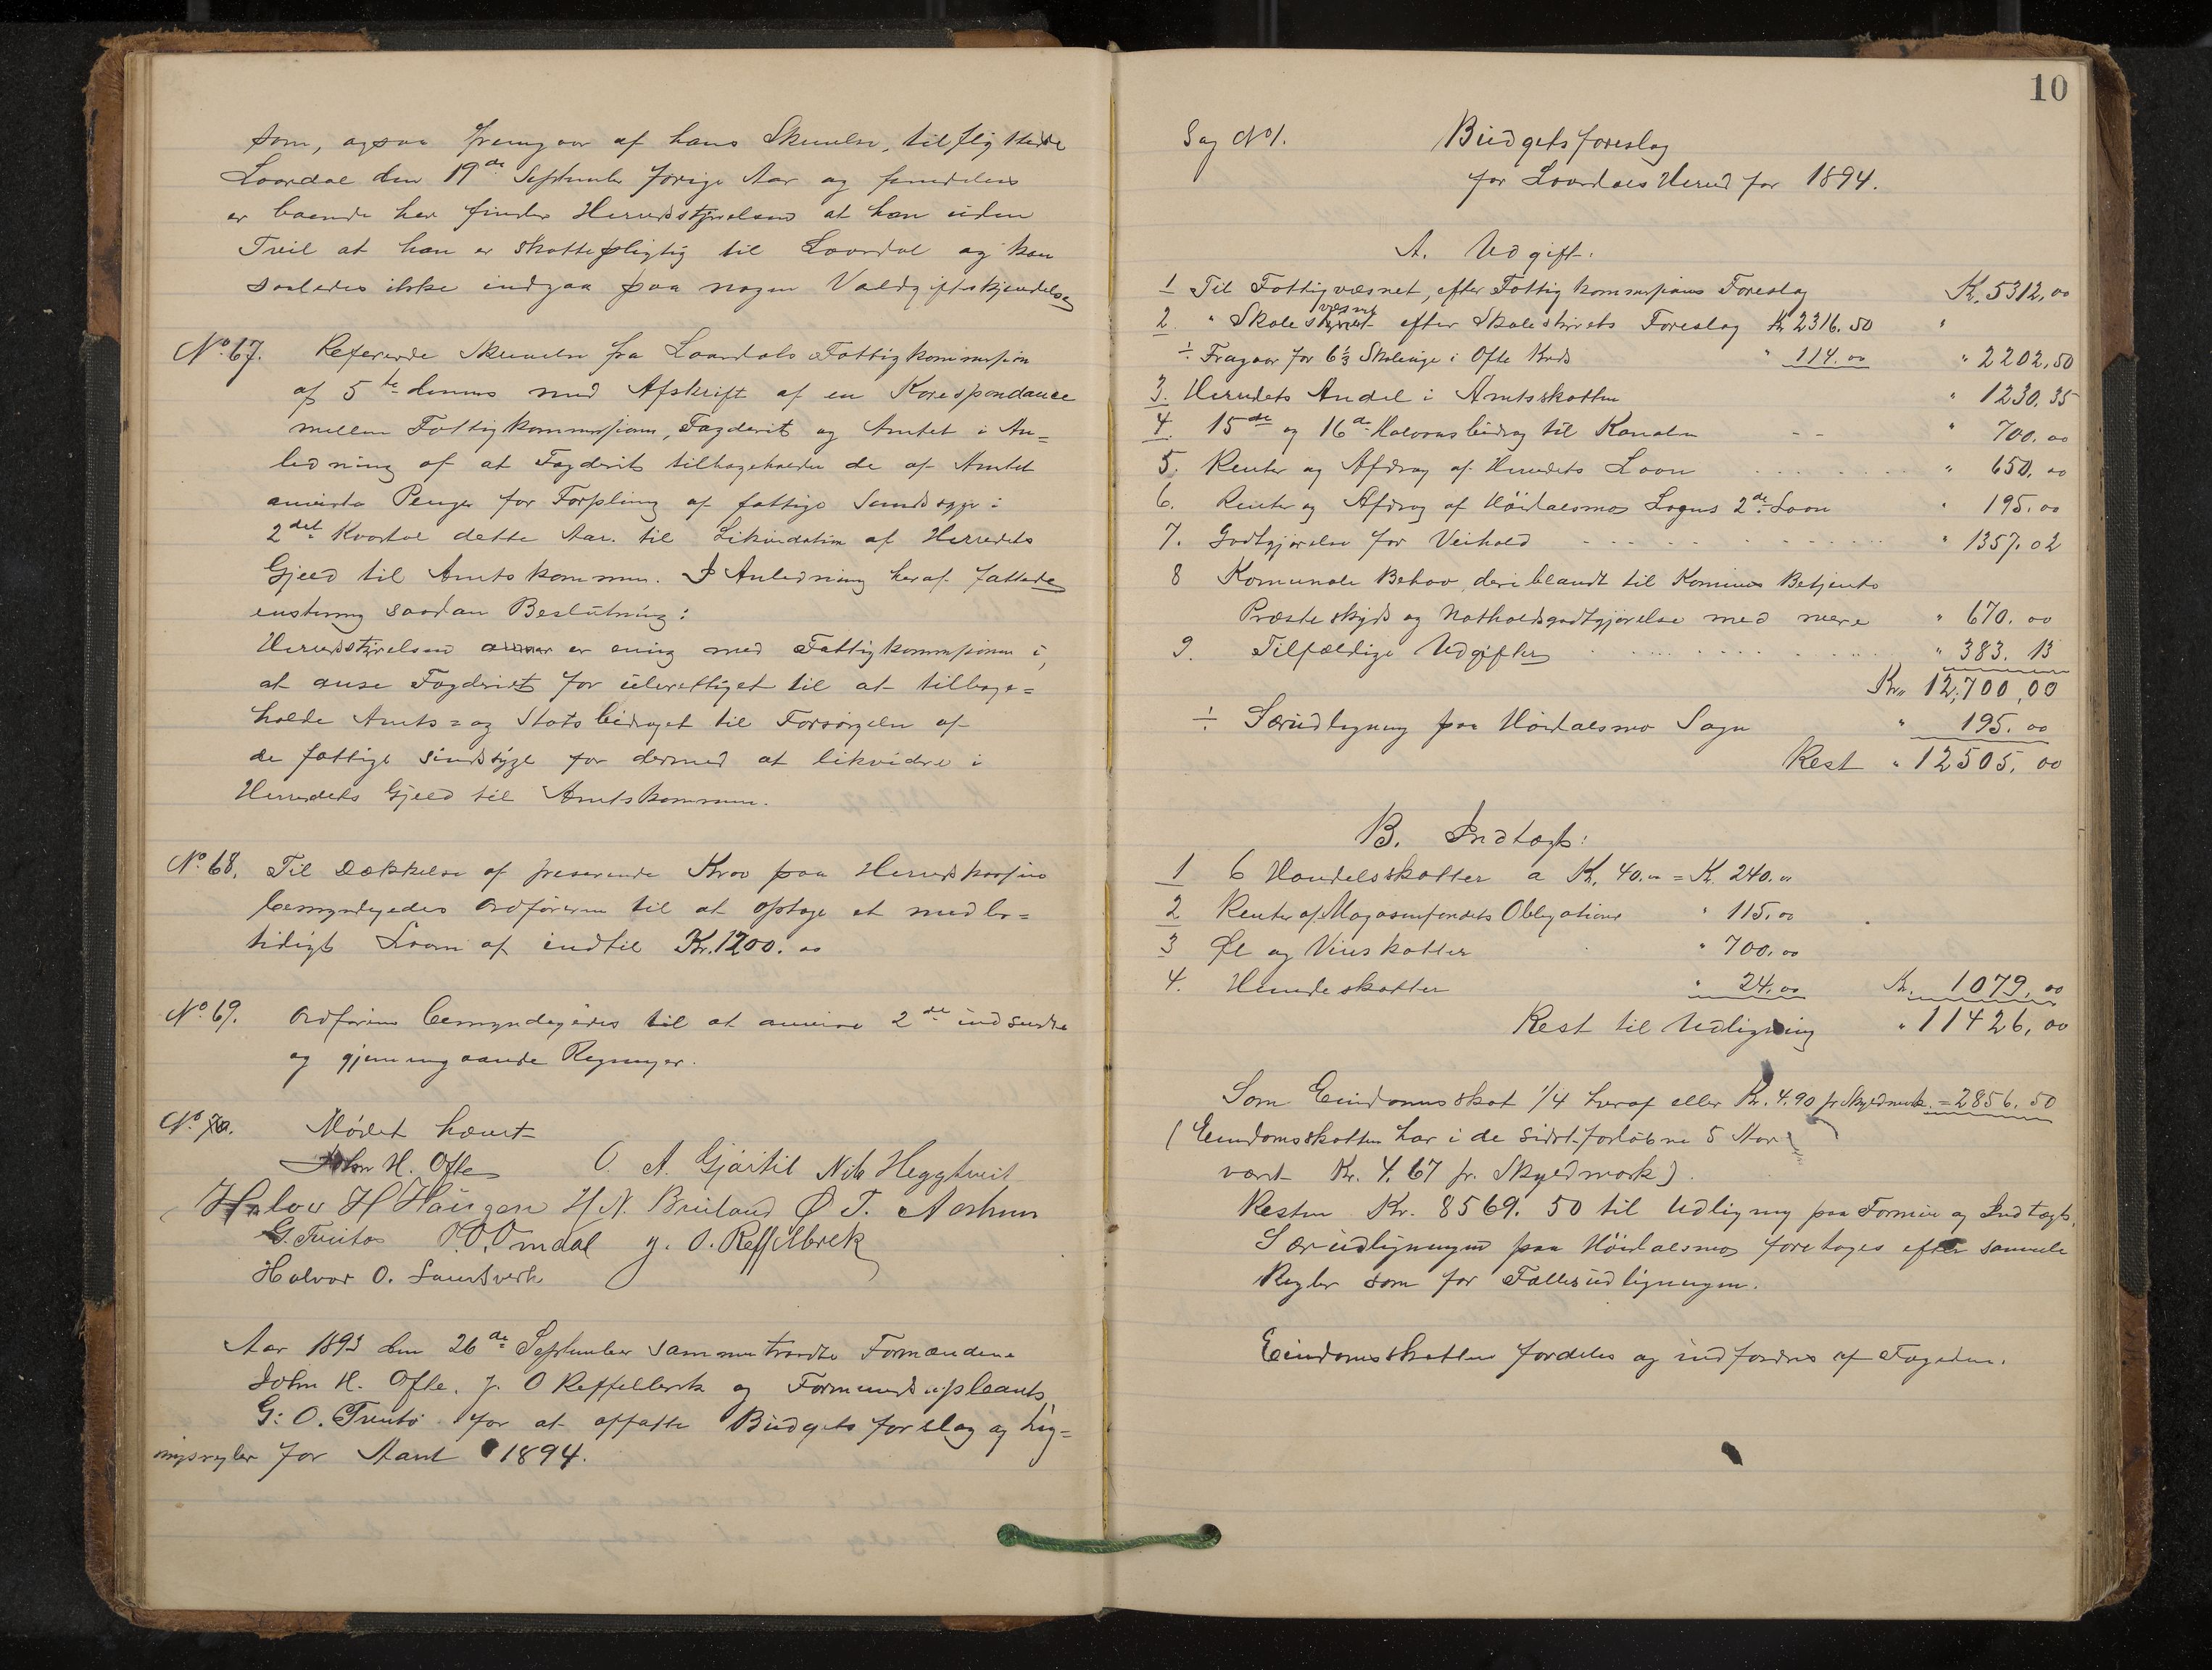 som, ogsaa fremgaar af hans Skrivelse, tilflyttede
Laardal den 19de September forige Aar og fremdeles
er boende her finder Herredsstyrelsen at han uden
Tvil at han er skattepligtig til Laardal og kan
saaledes ikke indgaa paa nogen Voldgiftskjendelse
No. 67. Refererede Skrivelse fra Laardals Fattigkommission
af 5te dennes med Afskrift af en Korespondance
mellem Fattigkommissionen, Fogderiet og Amtet i An=
ledning af at Fogderiet tilbageholder de af Amtet
anviste Penger for Forpleining af fattige Sindssyge i
2det Kvartal dette Aar til Likvidation af Herredets
Gjeld til Amtskommunen. I Anledning heraf fattedes
enstemmig saadan Beslutning:
Herredsstyrelsen er enig med Fattigkommissionen i,
at anse Fogderiet for uberettiget til at tilbage=
holde Amts= og Statsbidraget til Forsørgelse af
de fattige sindssyge for dermed at likvidere i
Herredets Gjeld til Amtskommunen.
No. 68. Til Dækkelse af presserende Krav paa Herredskassen
bemyndigedes Ordføreren til at optage et midler=
tidigt Laan af indtil Kr. 1200.00
No. 69. Ordføreren bemyndigedes til at anvise 2de indsendte
og gjennemgaaende Regninger.
No. 70. Mødet hævet
John H. Ofte O. A. Gjastil Nils Heggtveit
Halvor H Haugen H. N. Bruland Ø. T. Aashun
G. Tveito K. O. Omdal J. O. Reffelbrek
Halvor O. Sandsverk
Aar 1893 den 26de September sammentraadte Formændene
John H. Ofte, J. O Reffelbrek og Formandssupleant
G: O. Tveito for at affatte Budgetsforslag og Lig=
ningsregler for Aaret 1894.
10
Sag No 1. Budgetsforeslag
for Laardals Herred for 1894.
A. Udgift.
1 Til Fattigvæsnet, efter Fattigkommissions Foreslag Kr. 5312,00
2. " Skolevæsnet efter Skolestyrets Foreslag Kr 2316.50 "
÷ Fragaar for 6⅓ Skoleuge i Ofte Kreds " 114.00 " 2202,50
3. Herredets Andel i Amtsskatten " 1230.35
4. 15de og 16de Halvaarsbidrag til Kanalen - - " 700.00
5. Renter og Afdrag af Herredets Laan " 650.00
6. Renter og Afdrag af Höidalsmos Sogns 2de Laan " 195.00
7. Godtgjørelse for Veihold " 1357.02
8 Komunale Behov, deriblandt til Komunens Betjente
Præsteskyds og Natholdsgodtgjørelse med mere " 670.00
9. Tilfældige Udgifter " 383.13
Kr. 12,700,00
÷ Særudligning paa Höidalsmo Sogn " 195.00
Rest " 12505,00
B. Indtægt:
1 6 Handelsskatter a Kr. 40.00 = Kr. 240.00
2 Renter af Magasinfondets Obligationer " 115.00
3 Øl og Vinskatter " 700.00
4. Hundeskatter " 24.00 Kr. 1079.00
Rest til Udligning " 11426,00
Som Eiendomsskat 1/4 heraf eller Kr. 4.90 pr Skyldmark = 2856.50
(Eiendomsskatten har i de sidst forløbne 5 Aar
været Kr. 4.67 pr. Skyldmark)
Resten Kr. 8569.50 til Udligning paa Formue og Indtægt.
Særudligningen paa Höidalsmo foretages efter samme
Regler som for Fællesudligningen.
Eiendomsskatten fordeles og indfordres af Fogden.